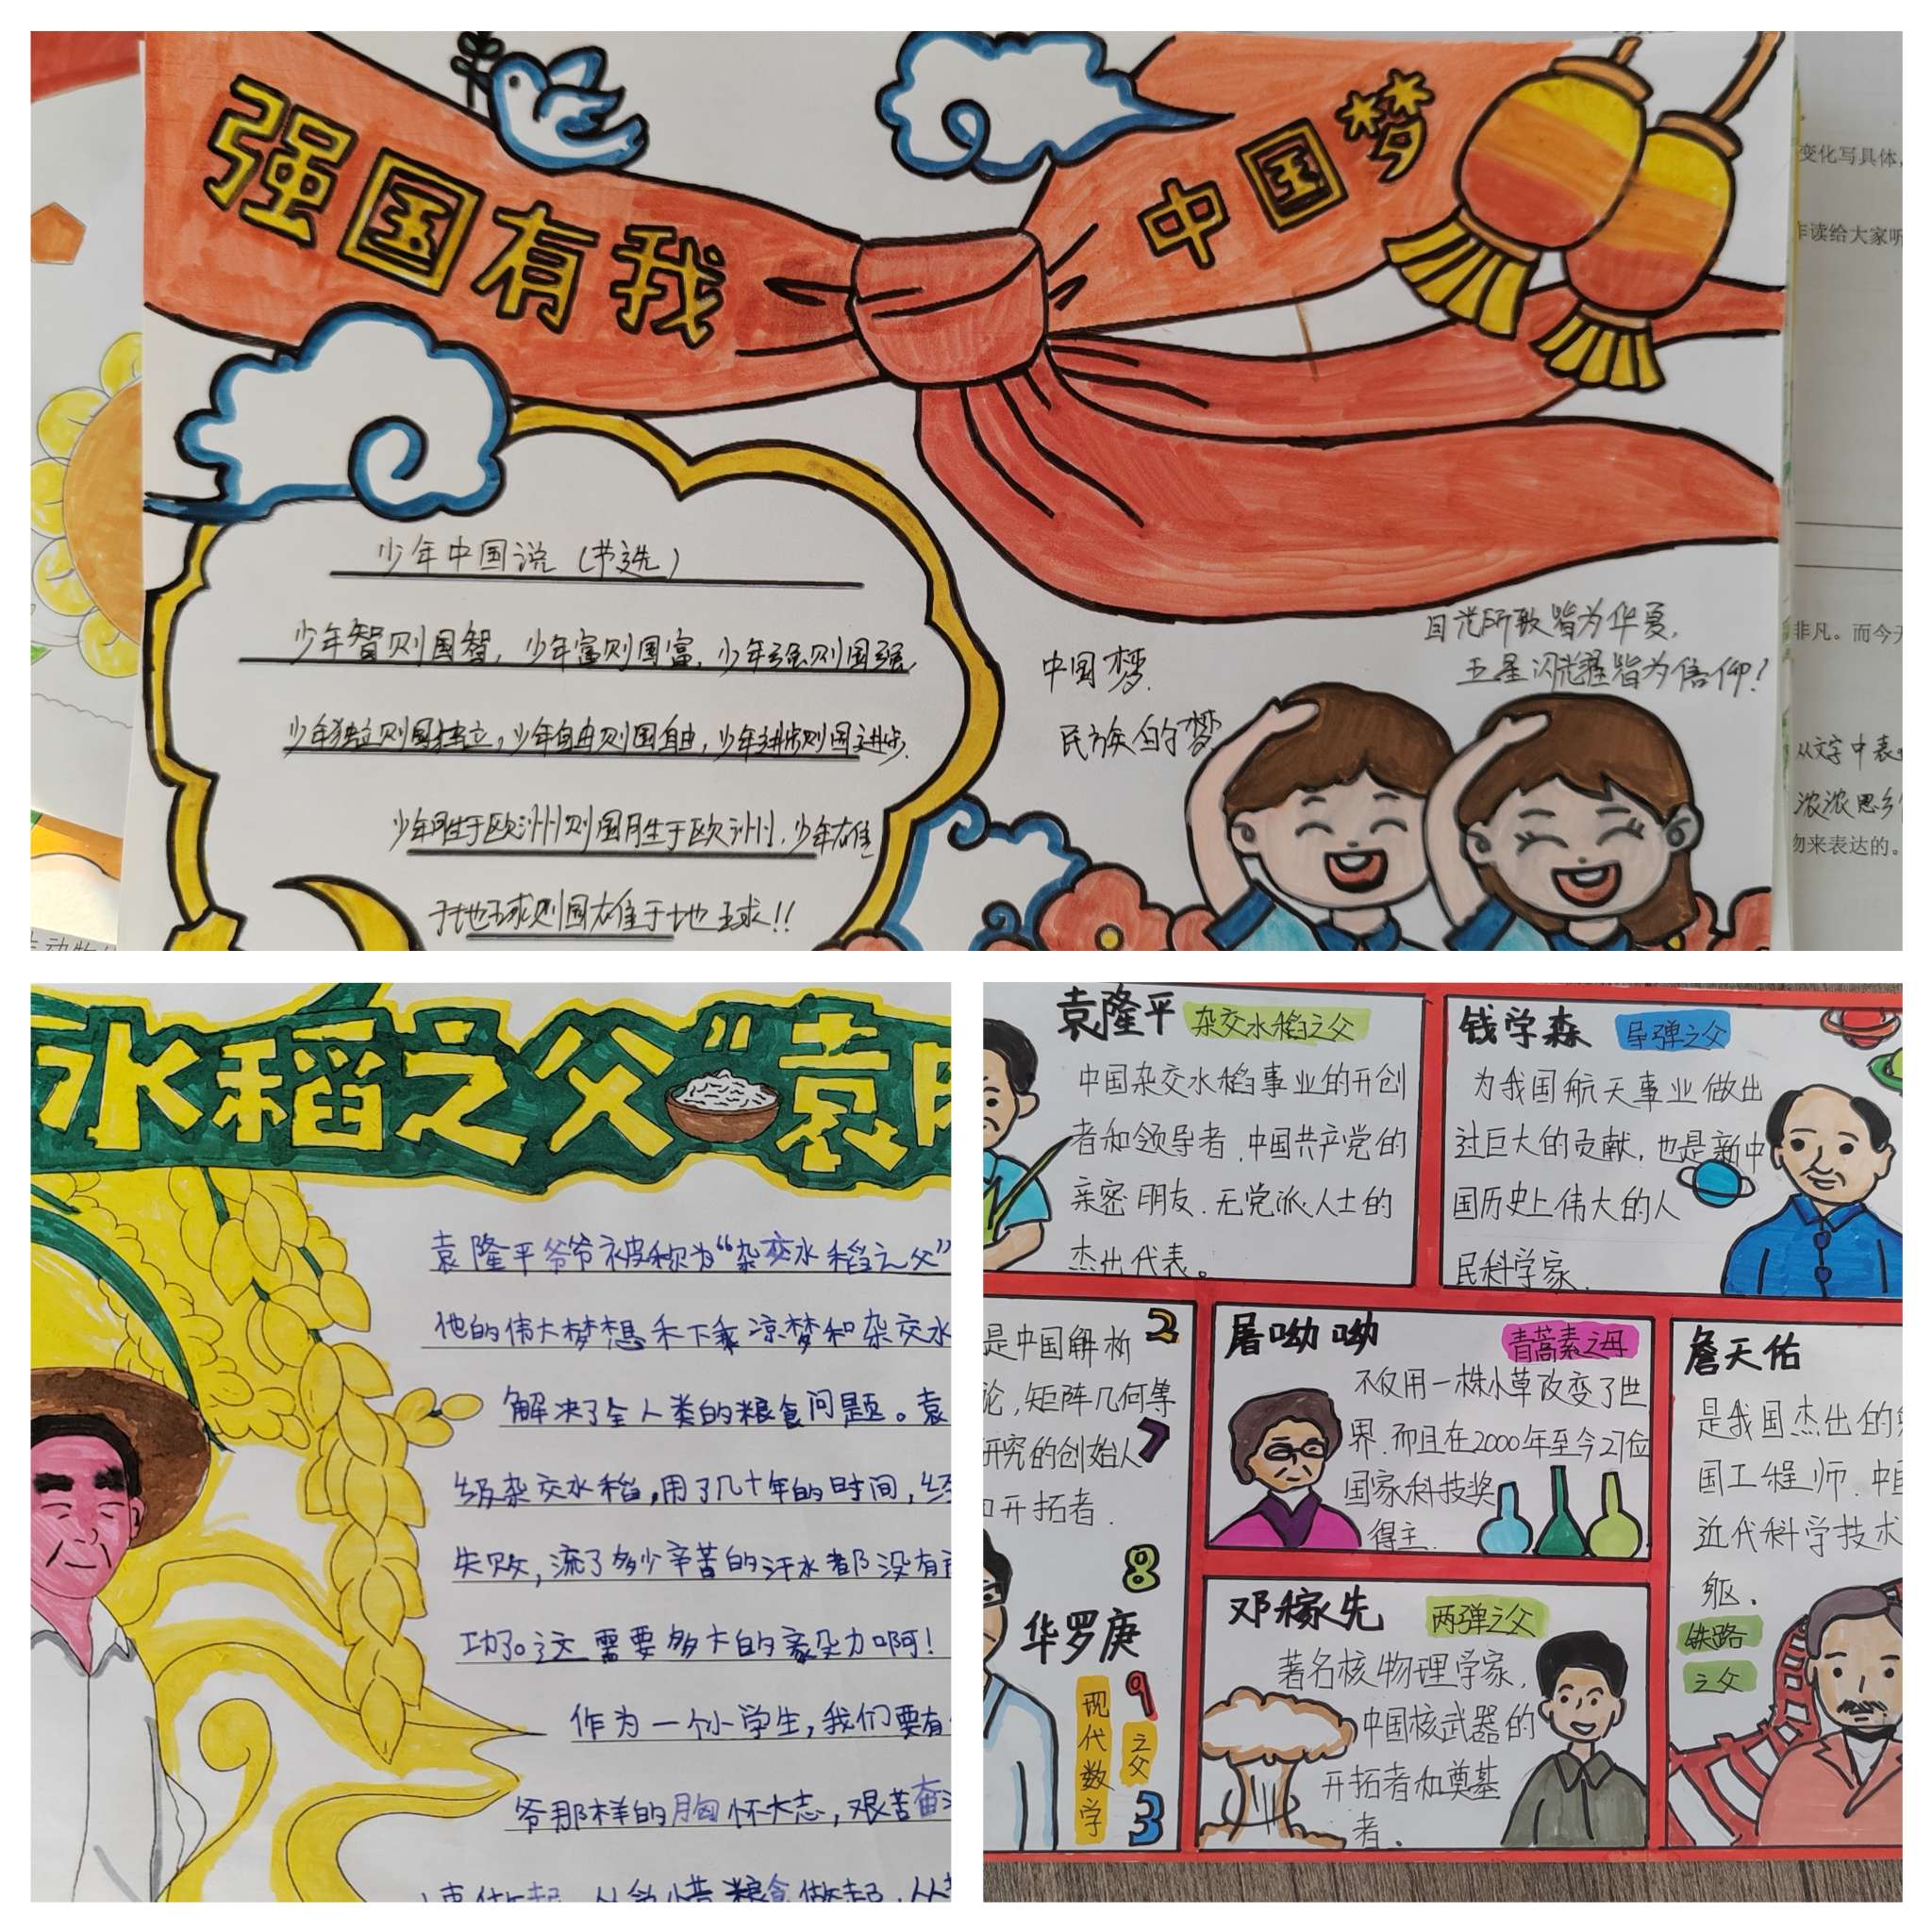 强国有我
中国梦
少年中国说(节选)
少年智则国智,少年富则国富,少年强则国强,
少年独立则国独立,少年自由则国自由,少年进步则国进步.
少年胜于欧洲则国胜于欧洲,少年雄
于地球则国雄于地球!!
中国梦
民族的梦
目光所致皆为华夏,
五星闪耀皆为信仰!
变化写具体,
读给大家听
非凡。而今天
从文字中表
浓浓思乡
物来表达的。
水稻之父”袁
袁隆平爷爷被称为“杂交水稻之父”
他的伟大梦想禾下乘凉梦和杂交水
解决了全人类的粮食问题。袁
级杂交水稻,用了几十年的时间,经
失败,流了多少辛苦的汗水都没有
功。这需要多大的毅力啊!
作为一个小学生,我们要有
爷那样的胸怀大志,艰苦奋
袁隆平 杂交水稻之父
中国杂交水稻事业的开创
者和领导者.中国共产党的
亲密朋友.无党派人士的
杰出代表。
钱学森 导弹之父
为我国航天事业做出
过巨大的贡献,也是新中
国历史上伟大的人
民科学家.
是中国解析
论,矩阵几何等
研究的创始人
和开拓者.
2
7
8
华罗庚
9
3
现代数学
之父
屠呦呦 青蒿素之母
不仅用一株小草改变了世
界.而且在2000年至今27位
国家科技奖
得主.
邓稼先 两弹之父
著名核物理学家,
中国核武器的
开拓者和奠基
者.
詹天佑
是我国杰出的
国工程师.中国
近代科学技术
躯.
铁路
之父